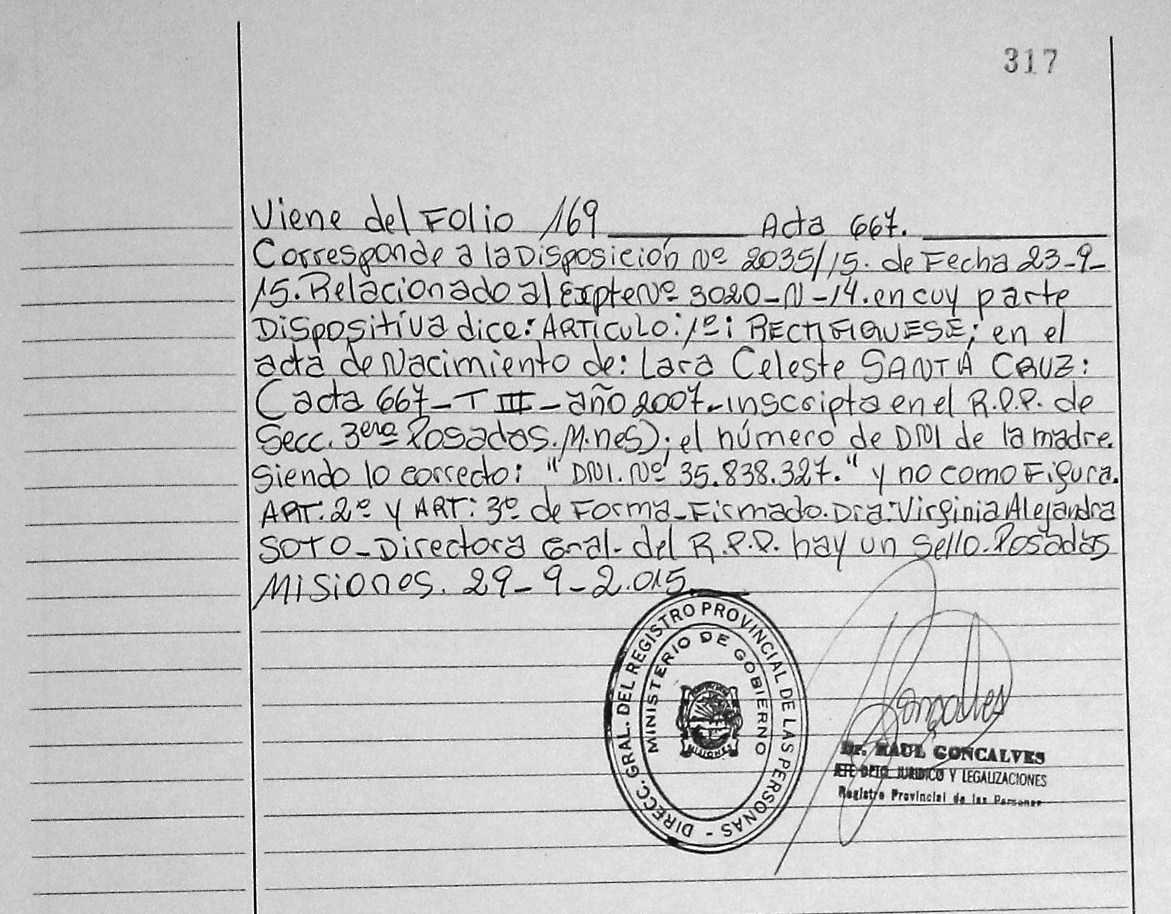 317
Viene del Folio 169 Acta 667.
Corresponde a la Disposición Nº 2035/15. de Fecha 23-9-
15. Relacionado al Expte Nº 3020-N-14. en cuy parte
Dispositiva dice: ARTICULO: 1º: RECTIFIQUESE; en el
acta de Nacimiento de: Lara Celeste SANTA CRUZ:
(acta 667-T III-año 2007-inscripta en el R.P.P. de
Secc. 3era Posadas. M.nes); el número de DNI de la madre.
Siendo lo correcto: "DNI. Nº 35.838.327." y no como Figura.
ART. 2º y ART: 3º de Forma-Firmado. Dra: Virginia Alejandra
SOTO-Directora Gral. del R.P.P. hay un Sello. Posadas
Misiones. 29-9-2.015
DIRECC. GRAL. DEL REGISTRO PROVINCIAL DE LAS PERSONAS -
MINISTERIO DE GOBIERNO
MISIONES
Gonçalves
Dr. RAUL GONCALVES
JEFE DPTO. JURIDICO Y LEGALIZACIONES
Registro Provincial de las Personas